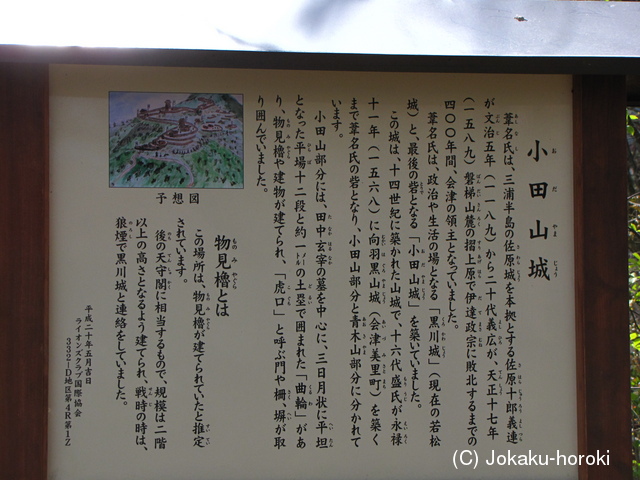 小田山城
おだやまじょう
葦名氏は、三浦半島の佐原城を本拠とする佐原十郎義連
が文治五年（一一八九）から二十代義広が、天正十七年
（一五八九）磐梯山麓の摺上原で伊達政宗に敗北するまでの
四〇〇年間、会津の領主となっていました。
葦名氏は、政治や生活の場となる「黒川城」（現在の若松
城）と、最後の砦となる「小田山城」を築いていました。
この城は、十四世紀に築かれた山城で、十六代盛氏が永禄
十一年（一五六八）に向羽黒山城（会津美里町）を築く
まで葦名氏の砦となり、小田山部分と青木山部分に分かれて
います。
小田山部分には、田中玄宰の墓を中心に、三日月状に平坦
となった平場十二段と約一㍍の土塁で囲まれた「曲輪」があ
り、物見櫓や建物が建てられ、「虎口」と呼ぶ門や柵、塀が取
り囲んでいました。
予想図
物見櫓とは
ものみやぐら
この場所は、物見櫓が建てられていたと推定
されています。
後の天守閣に相当するもので、規模は二階
以上の高さとなるよう建てられ、戦時の時は、
狼煙で黒川城と連絡をしていました。
平成二十年五月吉日
ライオンズクラブ国際協会
332-D地区第4R第1Z
(C) Jokaku-horoki